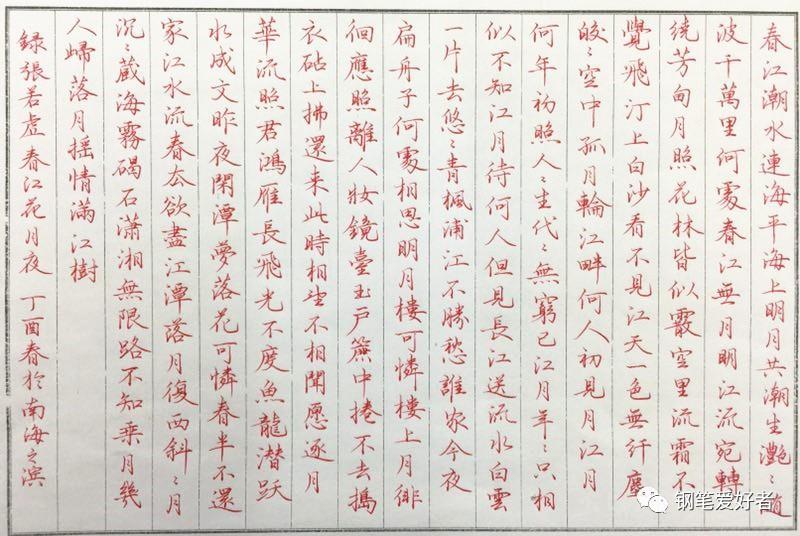 春江潮水連海平海上明月共潮生灔〻随
波千萬里何處春江無月明江流宛轉
繞芳甸月照花林皆似霰空里流霜不
覺飛汀上白沙看不見江天一色無纤塵
皎〻空中孤月輪江畔何人初見月江月
何年初照人〻生代〻無窮已江月年〻只相
似不知江月待何人但見長江送流水白雲
一片去悠〻青楓浦江不勝愁誰家今夜
扁舟子何處相思明月樓可憐樓上月徘
徊應照離人妝鏡臺玉户簾中捲不去搗
衣砧上拂還来此時相望不相聞愿逐月
華流照君鴻雁長飛光不度魚龍潜跃
水成文昨夜閑潭夢落花可憐春半不還
家江水流春去欲盡江潭落月復西斜〻月
沉〻藏海霧碣石瀟湘無限路不知乘月幾
人歸落月摇情滿江樹
録張若虚春江花月夜 丁酉春於南海之滨
钢笔爱好者